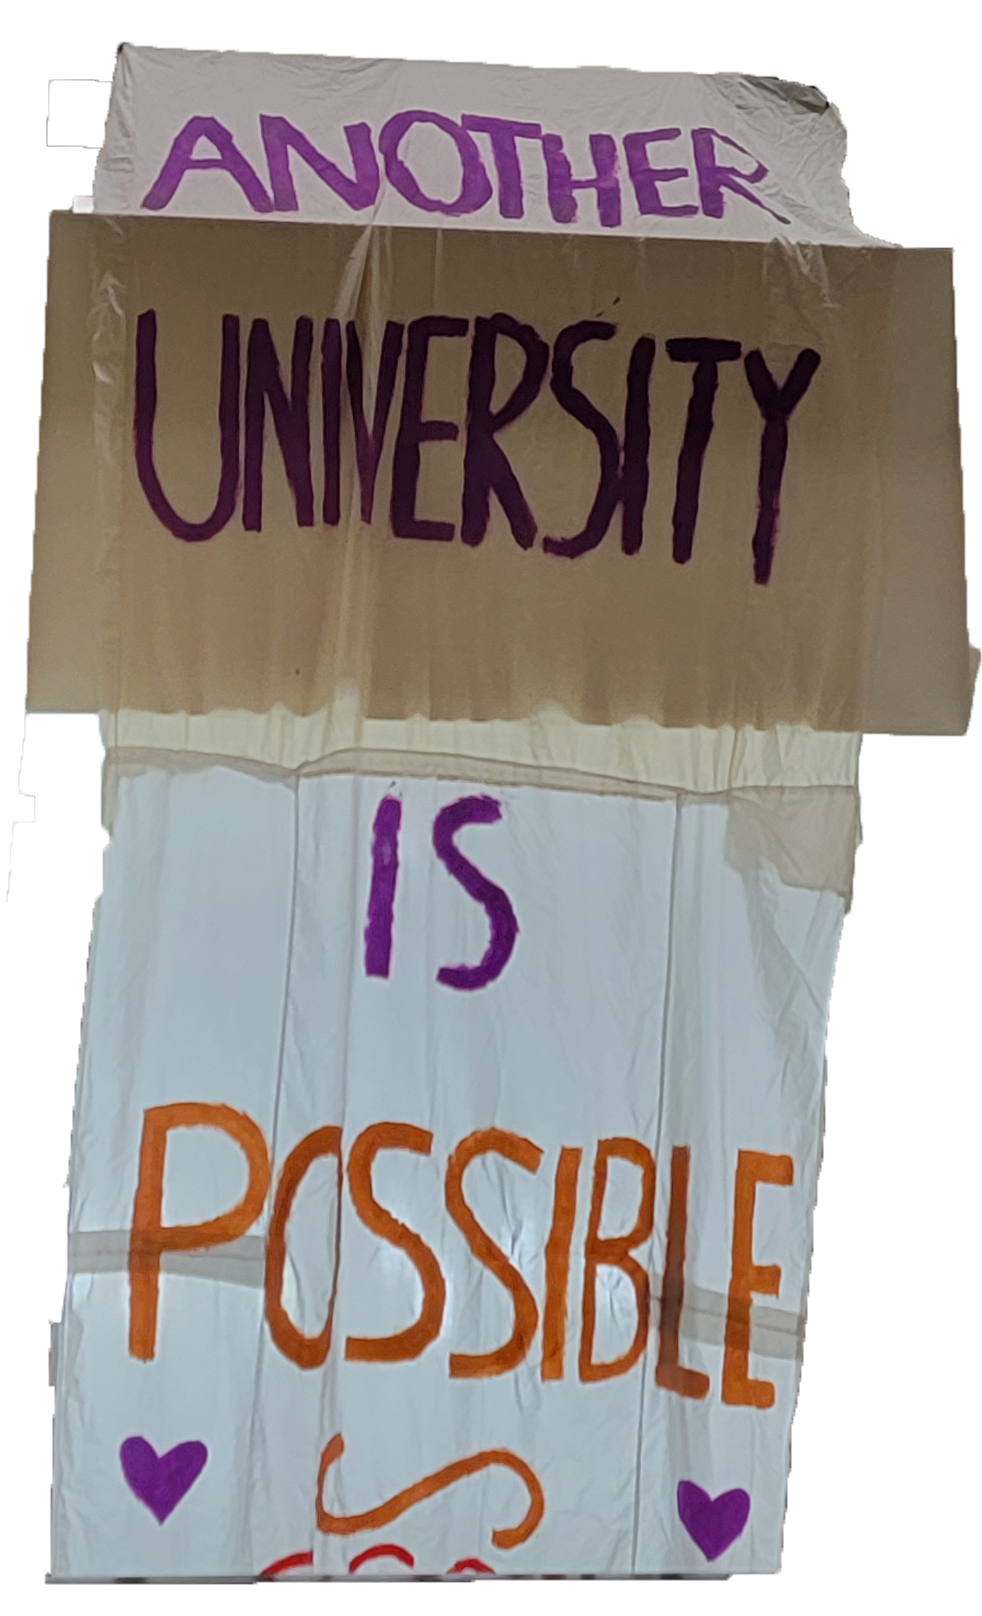 ANOTHER
UNIVERSITY
IS
POSSIBLE